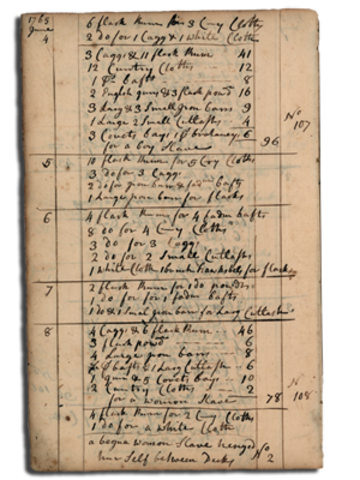 1765 6 flask Rum for 3 Cuy Cloths
June 4 2 do for 1 Cagg & 1 white Cloth
3 Caggs & 11 flask Rum 41
12 Cuntry Cloths 12
1 ps bafts 8
2 English guns & 3 flask powdr 16
3 Larg & 3 Small Iron bars 9
1 Large 2 Small Cutlashs 4
3 Covets bags, 6
for a boy Slave 96 No 107
5 10 flask Rum for 5 Cuy Cloths
3 do for 3 Cagg
2 do for Iron bars & bafts
1 Large Iron barr for flasks
6 4 flask Rum for 4 fadm bafts
8 do for 4 Cuy Cloths
3 do for 3 Cagg
2 do for 2 Small Cutlashs
1 white Cloth for flask
7 2 flask Rum for 1 do powder
1 do for 1 fadm bafts
1 do & 1 Smal Iron barr for Larg Cutlash
8 4 Caggs & 6 flask Rum 46
3 flask powdr 6
4 Large Iron barrs 8
bafts & 1 Larg Cutlash 6
1 gun & 5 Covets bags 10
2 Cuntry Cloths 2
for a woman Slave 78 No 108
4 flask Rum for 2 Cuy Cloths
1 do for a white Cloth
a woman Slave henged
hur Self between Decks No 2